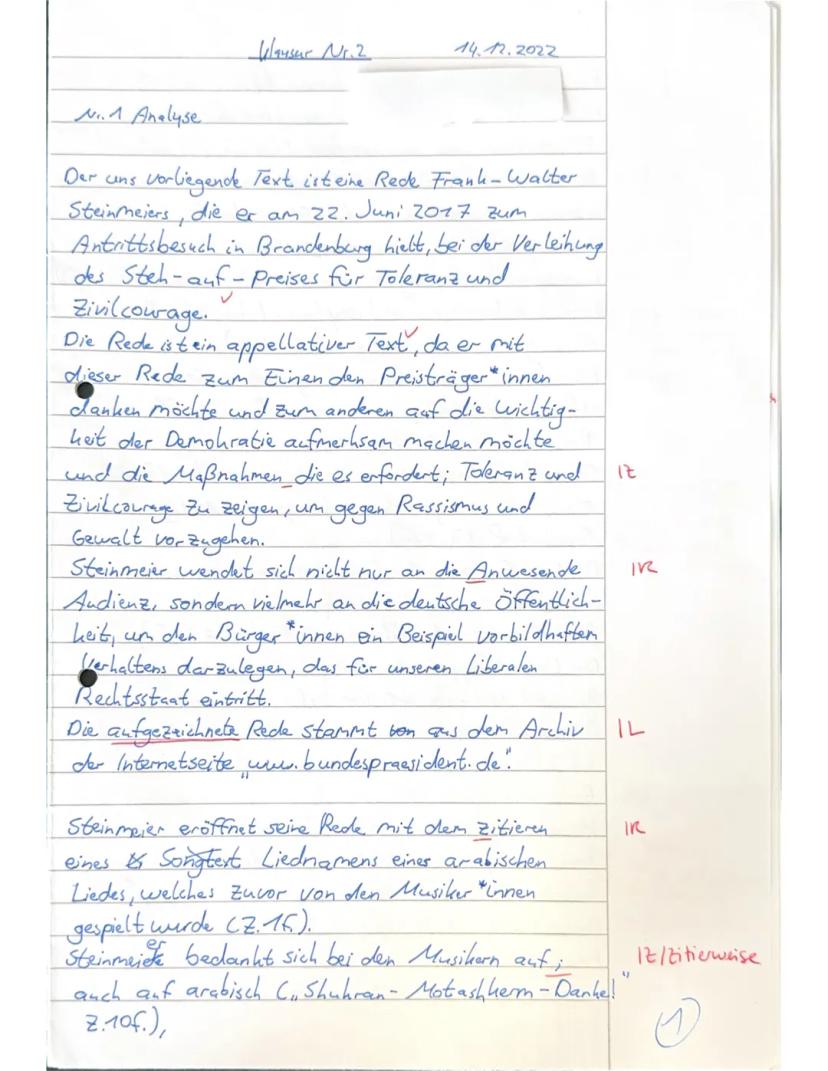 Klausur Nr. 2 14.12.2022
Nr. 1 Analyse
Der uns vorliegende Text ist eine Rede Frank-Walter
Steinmeiers, die er am 22. Juni 2017 zum
Antrittsbesuch in Brandenburg hielt, bei der Verleihung
des Steh-auf-Preises für Toleranz und
Zivilcourage.
Die Rede ist ein appellativer Text, da er mit
dieser Rede zum Einen den Preisträger*innen
danken möchte und zum anderen auf die Wichtig-
keit der Demokratie aufmerksam machen möchte
und die Maßnahmen die es erfordert; Toleranz und IZ
Zivilcourage zu zeigen, um gegen Rassismus und
Gewalt vorzugehen.
Steinmeier wendet sich nicht nur an die Anwesende IR
Audienz, sondern vielmehr an die deutsche Öffentlich-
keit, um den Bürger*innen ein Beispiel vorbildhaften
Verhaltens darzulegen, das für unseren Liberalen
Rechtsstaat eintritt.
Die aufgezeichnete Rede stammt von aus dem Archiv IL
der Internetseite „www.bundespraesident.de".
Steinmeier eröffnet seine Rede mit dem zitieren IR
eines Songtext Liednamens eines arabischen
Liedes, welches zuvor von den Musiker*innen
gespielt wurde (Z.1f.).
Steinmeier bedankt sich bei den Musikern auf; IZ/Zitierweise
auch auf arabisch („Shukran-Motashkerm-Danke!"
Z.10f.),
1